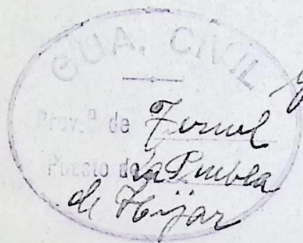 GUA. CIVIL
Prov.ª de Teruel
Puesto de La Puebla
de Hijar